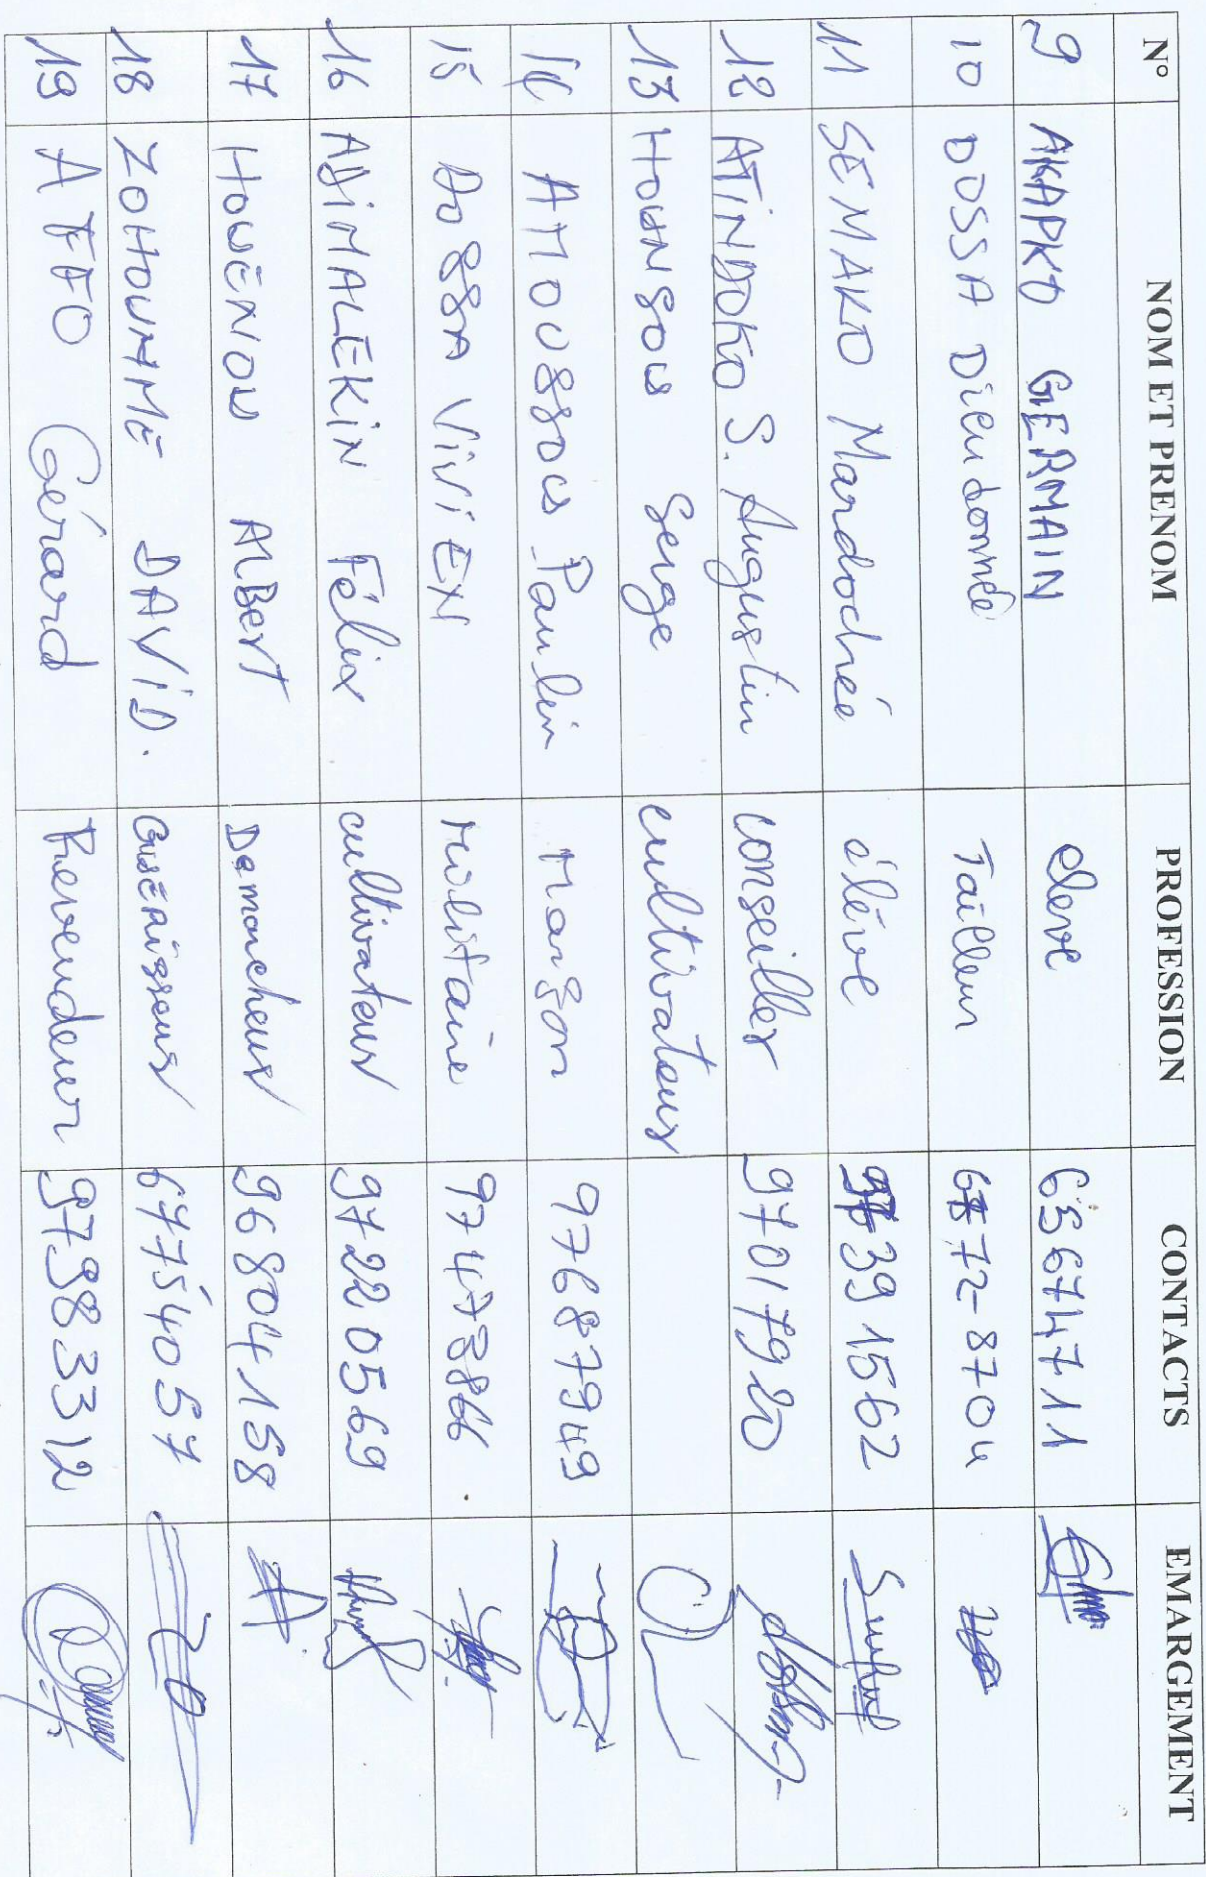 N° NOM ET PRENOM PROFESSION CONTACTS EMARGEMENT
9 AKAPKO GERMAIN eleve 65674711
10 DOSSA Dieudonné Tailleur 6872-8704
11 SEMAKO Mardochée élève 97391562
12 ATINDOKO S. Augustin conseiller 97017920
13 HOUNSOU Serge cultivateur
14 AMOUSSOU Paulin Maçon 97687949
15 DOSSA ViViEN 97473866
16 ADJIMALEKIN Félix cultivateur 97220569
17 HOUÉNOU ALBert Demarcheur 96804158
18 ZOHOUNMÈ DAViD. 64754057
19 AFFO Gérard Revendeur 97983312